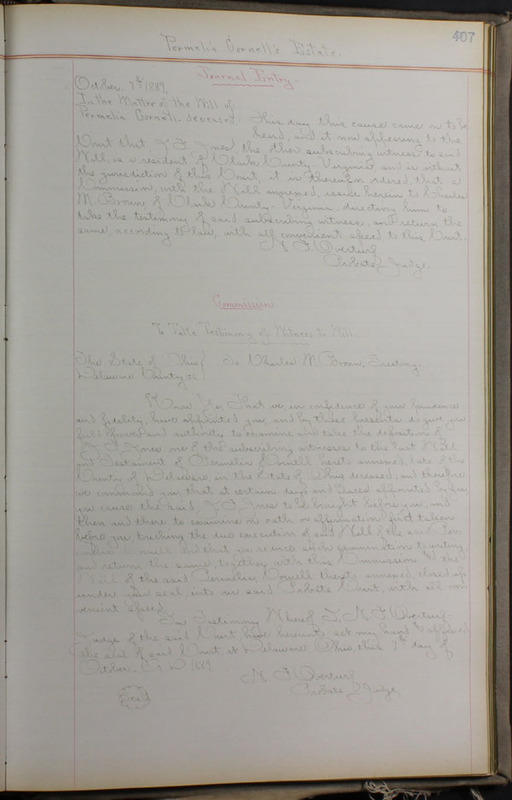 407
Permelia Cornell's Estate.
Journal Entry.
October 7th 1889.
In the Matter of the Will of
Permelia Cornell, deceased. This day this cause came on to be
heard, and it now appearing to the
Court that the other subscribing witness to said
Will, is a resident of County, Virginia and is without
the jurisdiction of this Court it is therefore ordered, that a
Commission, with the Will annexed, issue herein to Charles
M. Brown of County, Virginia, directing him to
take the testimony of said subscribing witness, and return the
same, according to law, with all convenient speed to this Court.
Overturf
Probate Judge.
Commission
To Take Testimony of Witness to Will.
The State of Ohio
Delaware County, ss. To Charles M. Brown, Greeting:
Know Ye, That we, in confidence of your prudence
and fidelity, have appointed you, and by these presents do give you
full power and authority to examine and take the deposition of
one of the subscribing witnesses to the last Will
and Testament of Permelia Cornell hereto annexed, late of the
County of Delaware in the State of Ohio deceased, and therefore
we command you, that at certain days and places appointed by you
you cause the said to be brought before you, and
then and there to examine on oath or affirmation first taken
before you touching the due execution of said Will of the said
and that you reduce such examination to writing,
and return the same, together with this Commission & the
Will of the said Permelia Cornell thereto annexed, closed up
under your seal, into our said Probate Court, with all con-
venient speed.
In Testimony Whereof, I, Overturf
Judge of the said Court have hereunto set my hand & affixed
the seal of said Court at Delaware Ohio, this 7th day of
October A.D. 1889
Overturf
Probate Judge.
Seal